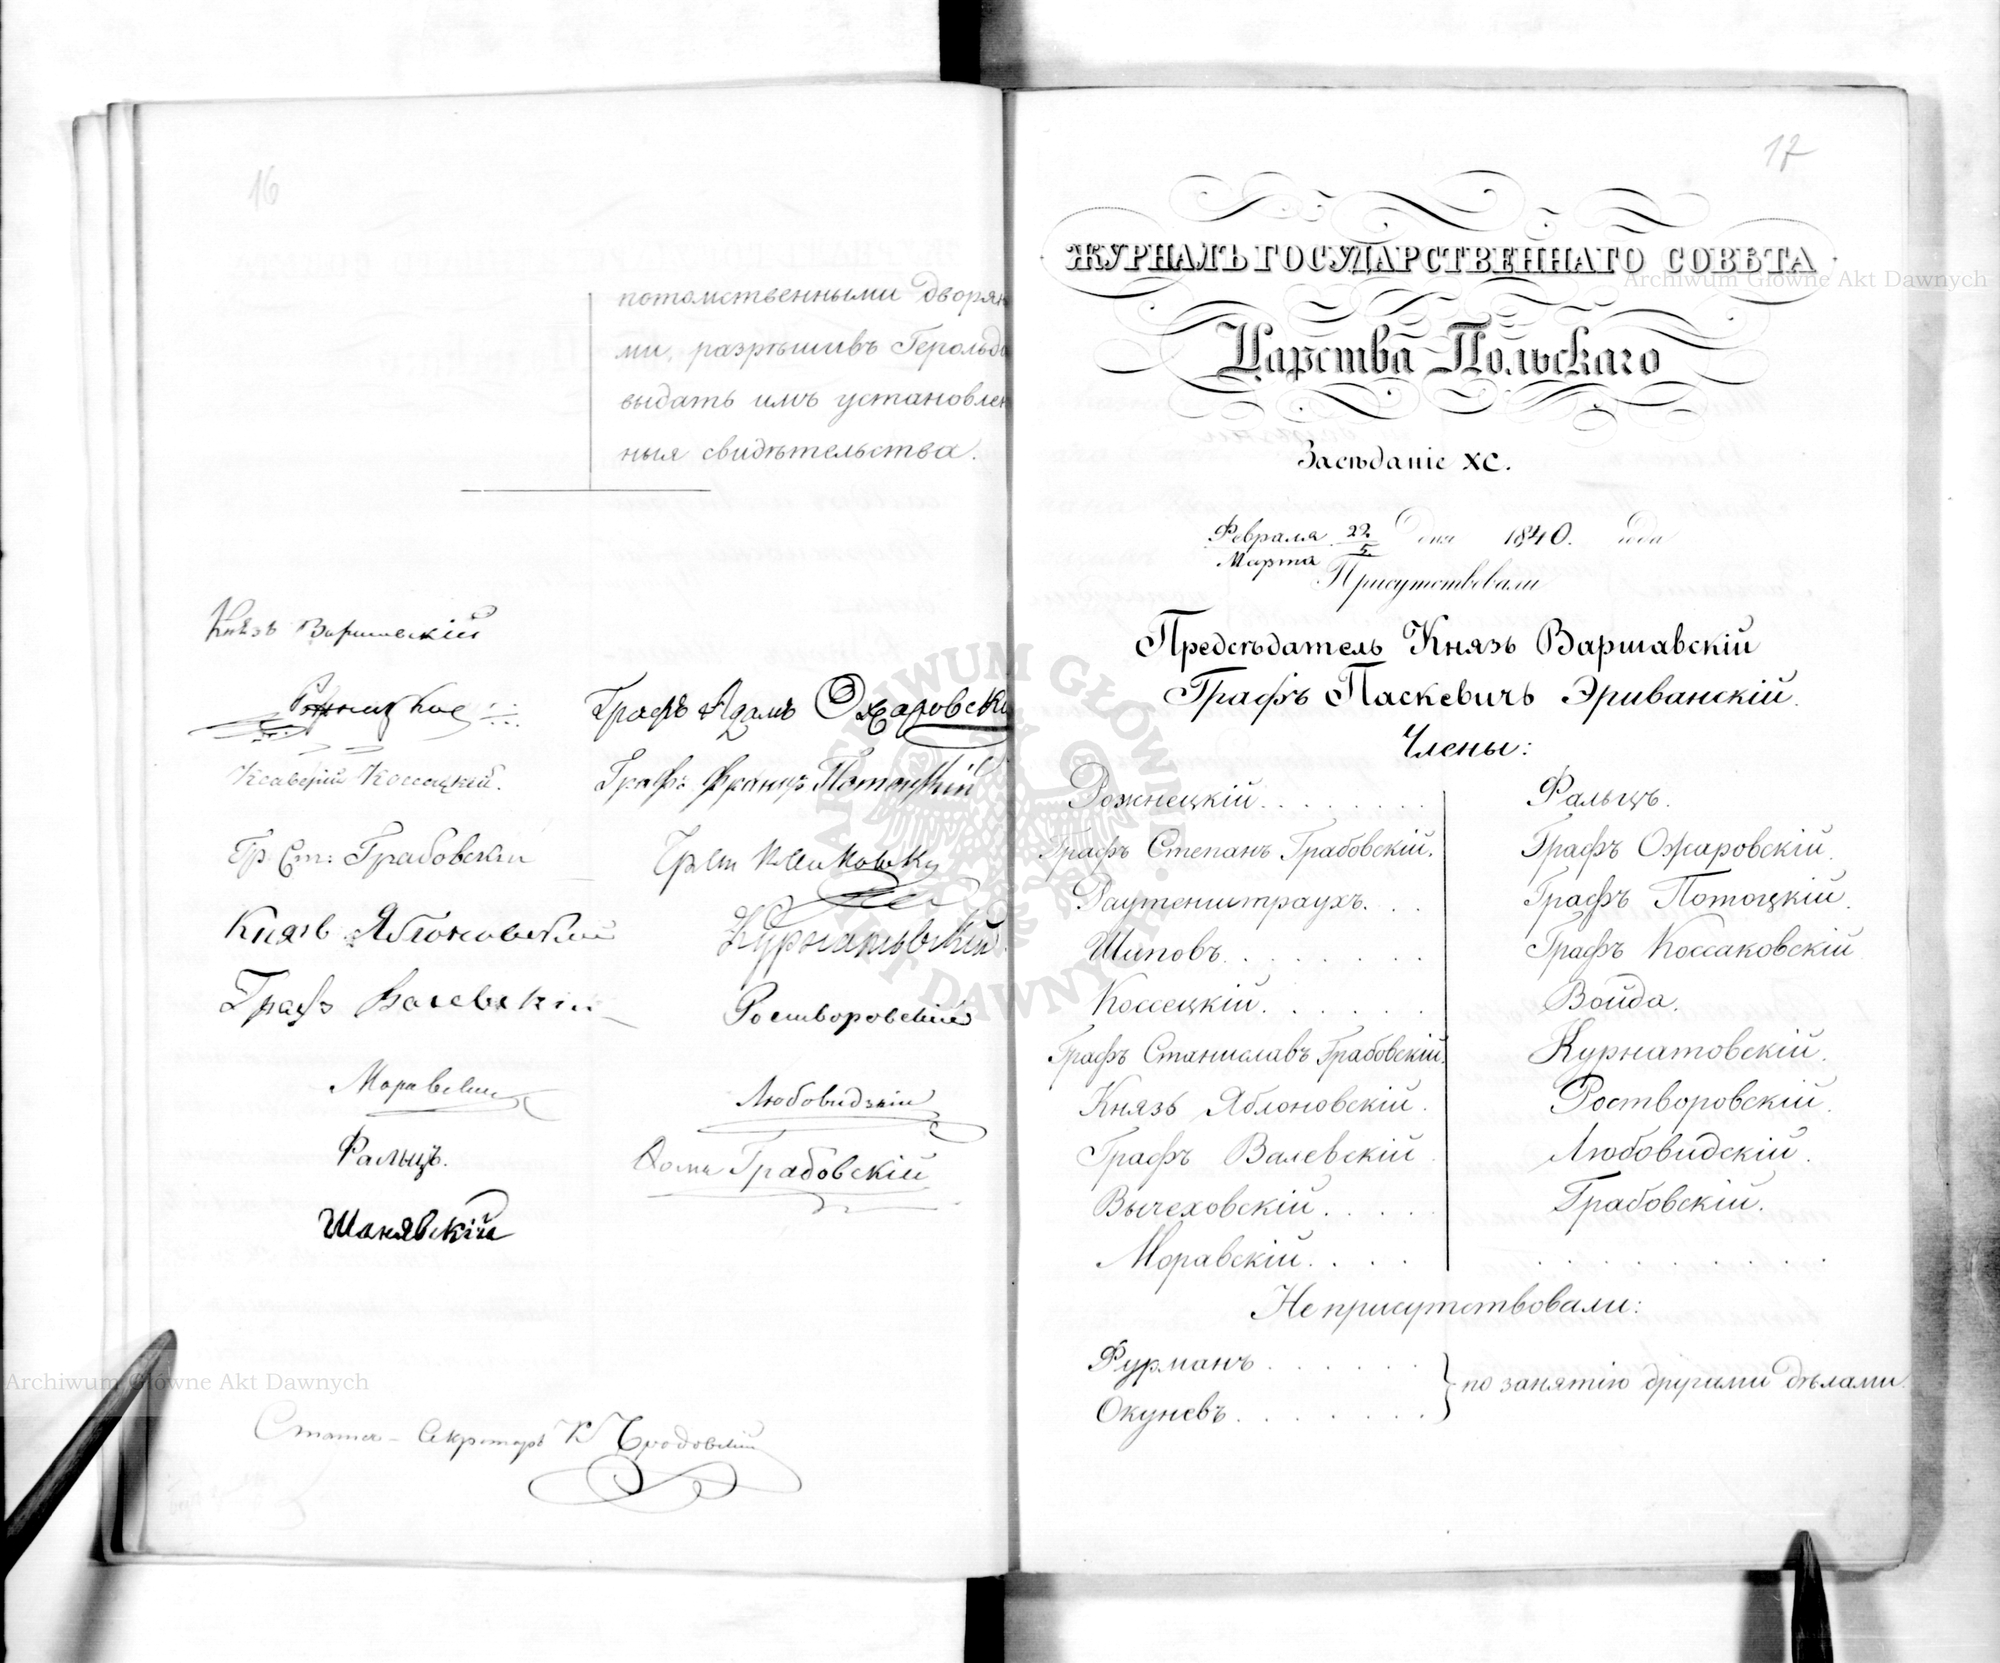 16
потомственными дворян
ми, разрѣшивъ Герольд
выдать имъ установлен
ныя свидѣтельства.
Князь Варшавскій
Графъ Адамъ Ожаровскі
Ксаверій Коссецкій.
Граф: Францъ Потоцкій
Гр. Ст: Грабовскій
Князь Яблоновскій
Курнатовскій.
Графъ Валевскій
Ростворовскій
Моравскій
Любовидзкій
Фальцъ.
Грабовскій
Шанявскій
Статсъ-Секретарь
17
ЖУРНАЛЪ ГОСУДАРСТВЕННАГО СОВѢТА
Царства Польскаго
Засѣданіе XC.
Февраля 22 дня 1840. года
Марта 5.
Присутствовали
Предсѣдатель Князь Варшавскій
Графъ Паскевичъ Эриванскій.
Члены:
Рожнецкій. . . . . . . .
Графъ Степанъ Грабовскій.
Раутенштраухъ. . .
Шиповъ. . . . . . . .
Коссецкій. . . . . . .
Графъ Станиславъ Грабовскій.
Князь Яблоновскій.
Графъ Валевскій.
Вычеховскій. . . . .
Моравскій. . . . .
Фальцъ.
Графъ Ожаровскій.
Графъ Потоцкій.
Графъ Коссаковскій
Войда.
Курнатовскій.
Ростворовскій.
Любовидскій.
Грабовскій.
Неприсутствовали:
Фурманъ . . . . . .
Окуневъ . . . . . . .
по занятію другими дѣлами.
Archiwum Główne Akt Dawnych
Archiwum Główne Akt Dawnych
ARCHIWUM GŁÓWNE AKT DAWNYCH